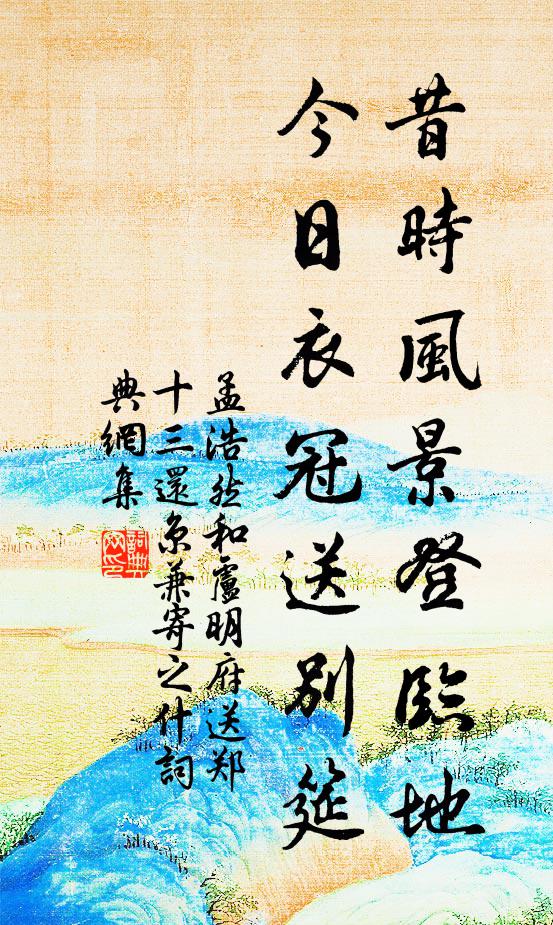 昔時風景登臨地
今日衣冠送別筵
孟浩然和盧明府送郑
十三還京兼寄之什詞
典網集
詞典
网印